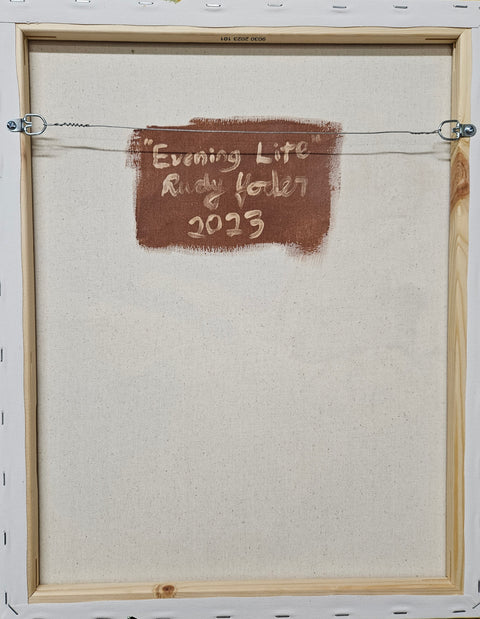 9030 2023 101
"Evening Life"
Rudy
2023